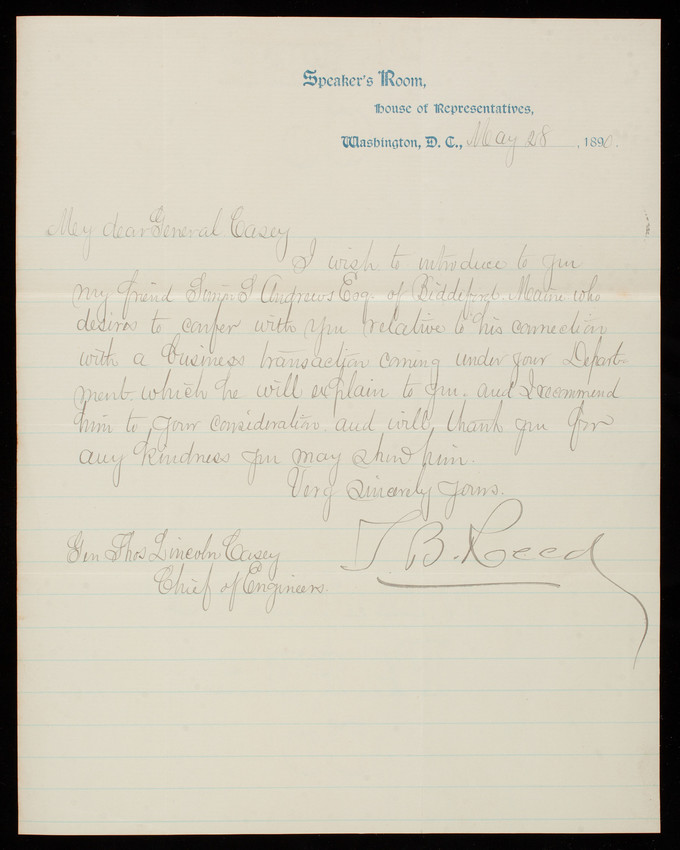 Speaker's Room,
House of Representatives,
Washington, D. C., May 28, 1890.
My dear General Casey
I wish to introduce to you
my friend Andrews Esq. of Biddeford. Maine who
desires to confer with you relative to his connection
with a business transaction coming under your Depart-
ment. which he will explain to you. and I recommend
him to your consideration. and will thank you for
any kindness you may show him.
Very Sincerely yours.
T. B. Reed
Gen Thos Lincoln Casey
Chief of Engineers.